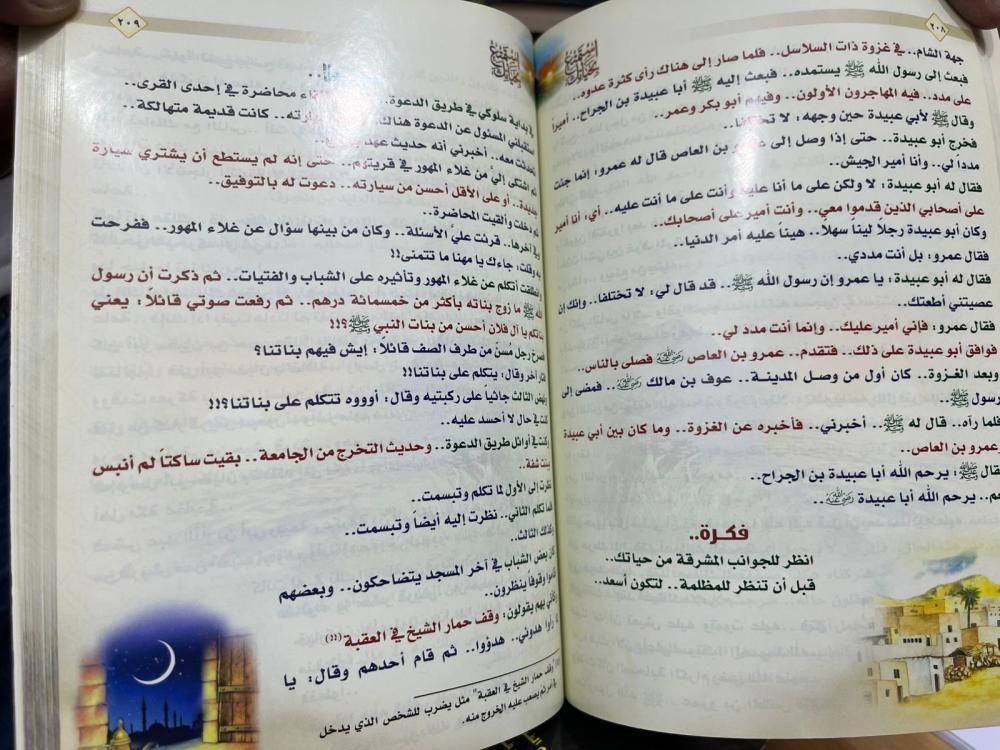 ٢٠٨
استمتع بحياتك
جهة الشام.. في غزوة ذات السلاسل.. فلما صار إلى هناك رأى كثرة عدوه..
فبعث إلى رسول الله ﷺ يستمده.. فبعث إليه ﷺ أبا عبيدة بن الجراح.. أميراً
على مدد.. فيه المهاجرون الأولون.. وفيهم أبو بكر وعمر..
وقال ﷺ لأبي عبيدة حين وجهه: لا تختلفا..
فخرج أبو عبيدة.. حتى إذا وصل إلى عمرو بن العاص قال له عمرو: إنما جئت
مدداً لي.. وأنا أمير الجيش..
فقال له أبو عبيدة: لا ولكن على ما أنا عليه وأنت على ما أنت عليه.. أي: أنا أمير
على أصحابي الذين قدموا معي.. وأنت أمير على أصحابك..
وكان أبو عبيدة رجلاً لينا سهلاً.. هيناً عليه أمر الدنيا..
فقال عمرو: بل أنت مددي..
فقال له أبو عبيدة: يا عمرو إن رسول الله ﷺ.. قد قال لي: لا تختلفا.. وإنك إن
عصيتني أطعتك..
فقال عمرو: فإني أمير عليك.. وإنما أنت مدد لي..
فوافق أبو عبيدة على ذلك.. فتقدم.. عمرو بن العاص رضي الله عنه فصلى بالناس..
وبعد الغزوة.. كان أول من وصل المدينة.. عوف بن مالك رضي الله عنه.. فمضى إلى
رسول ﷺ..
فلما رآه.. قال له ﷺ.. أخبرني.. فأخبره عن الغزوة.. وما كان بين أبي عبيدة
وعمرو بن العاص..
قال ﷺ: يرحم الله أبا عبيدة بن الجراح..
يرحم الله أبا عبيدة رضي الله عنه..
فكرة..
انظر للجوانب المشرقة من حياتك..
قبل أن تنظر للمظلمة.. لتكون أسعد..
٢٠٩
استمتع بحياتك
في بداية سلوكي في طريق الدعوة.. محاضرة في إحدى القرى..
استقبلني المسئول عن الدعوة هناك.. سيارته.. كانت قديمة متهالكة..
تحدثت معه.. أخبرني أنه حديث عهد
ثم اشتكى إليَّ من غلاء المهور في قريتهم.. حتى إنه لم يستطع أن يشتري سيارة
جديدة.. أو على الأقل أحسن من سيارته.. دعوت له بالتوفيق..
ثم دخلت وألقيت المحاضرة..
وفي آخرها.. قرئت عليَّ الأسئلة.. وكان من بينها سؤال عن غلاء المهور.. ففرحت
به وقلت: جاءك يا مهنا ما تتمنى!!
وانطلقت أتكلم عن غلاء المهور وتأثيره على الشباب والفتيات.. ثم ذكرت أن رسول
الله ﷺ ما زوج بناته بأكثر من خمسمائة درهم.. ثم رفعت صوتي قائلاً: يعني
بناتكم يا آل فلان أحسن من بنات النبي ﷺ؟!!
فصرخ رجل مُسنٌّ من طرف الصف قائلاً: إيش فيهم بناتنا؟
ثار آخر وقال: يتكلم على بناتنا!!
ونهض الثالث جاثياً على ركبتيه وقال: أوووه تتكلم على بناتنا؟!!
كنت في حال لا أحسد عليه..
وكنت في أوائل طريق الدعوة.. وحديث التخرج من الجامعة.. بقيت ساكتاً لم أنبس
ببنت شفة..
نظرت إلى الأول لما تكلم وتبسمت..
فلما تكلم الثاني.. نظرت إليه أيضاً وتبسمت..
وكذلك الثالث..
كان بعض الشباب في آخر المسجد يتضاحكون.. وبعضهم
قاموا وقوفاً ينظرون..
كأني بهم يقولون: وقف حمار الشيخ في العقبة (!!)
رأوا هدوئي.. هدؤوا.. ثم قام أحدهم وقال: يا
وقف حمار الشيخ في العقبة" مثل يضرب للشخص الذي يدخل
في أمر ثم يصعب عليه الخروج منه.